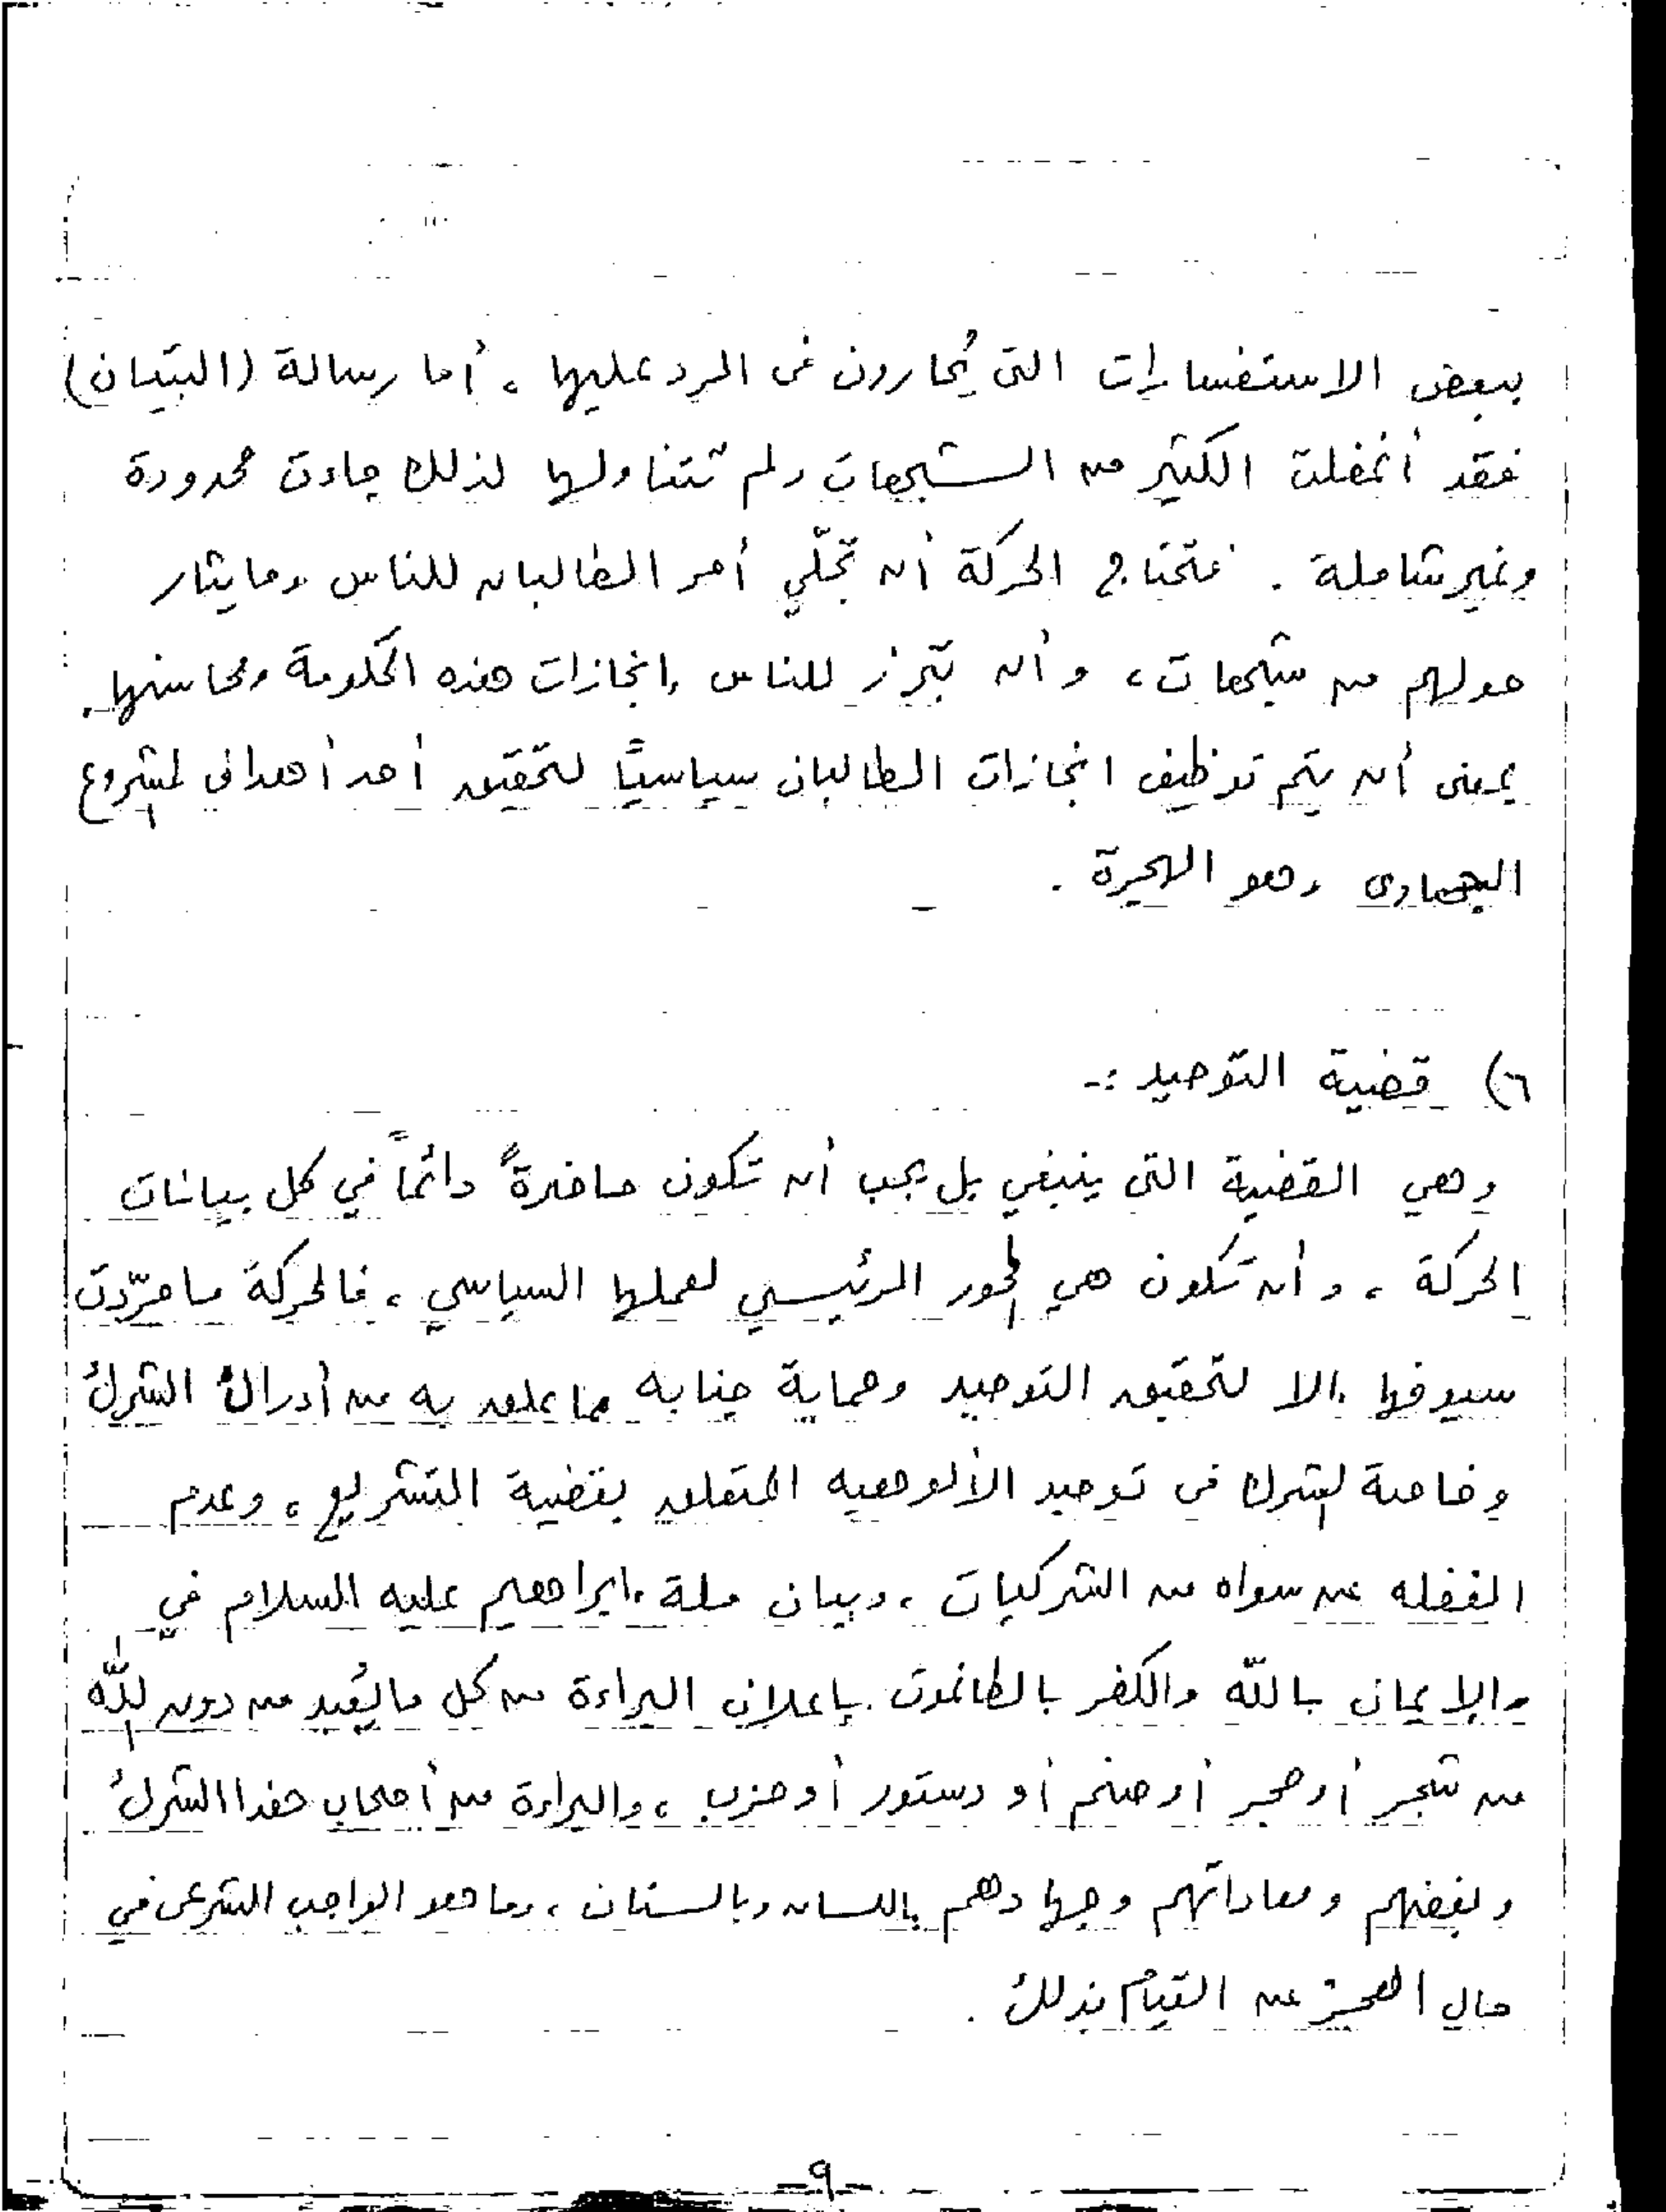 ببعض الاستفسارات التى يُحارون فى الرد عليها ، أما رسالة (التبيان)
فقد أغفلت الكثير من الشبهات ولم تتناولها لذلك جاءت محدودة
وغير شاملة . فتحتاج الحركة أن تجلّي أمر الطالبان للناس وما يثار
حولهم من شبهات ، وأن تبرز للناس إنجازات هذه الحكومة ومحاسنها .
بمعنى أن يتم توظيف انجازات الطالبان سياسيًا لتحقيق أحد أهداف المشروع
الجهادى وهو الهجرة .
٦) قضية التوحيد :-
وهي القضية التى ينبغي بل يجب أن تكون حاضرةً دائماً في كل بيانات
الحركة ، وأن تكون هي المحور الرئيسي لعملها السياسي ، فالحركة ما جرّدت
سيوفها إلا لتحقيق التوحيد وحماية جنابه مما علق به من أدران الشرك
وخاصة الشرك فى توحيد الألوهيه المتعلق بقضية التشريع ، وعدم
الغفله عن سواه من الشركيات ، وبيان ملة إبراهيم عليه السلام في
والإيمان بالله والكفر بالطاغوت بإعلان البراءة من كل ما يُعبد من دون الله
من شجر أو حجر أو صنم أو دستور أو حزب ، والبراءة من أصحاب هذا الشرك
وبغضهم ومعاداتهم وجهادهم باللسان وبالسنان ، وما هو الواجب الشرعى في
حال العجز عن القيام بذلك .
-٩-